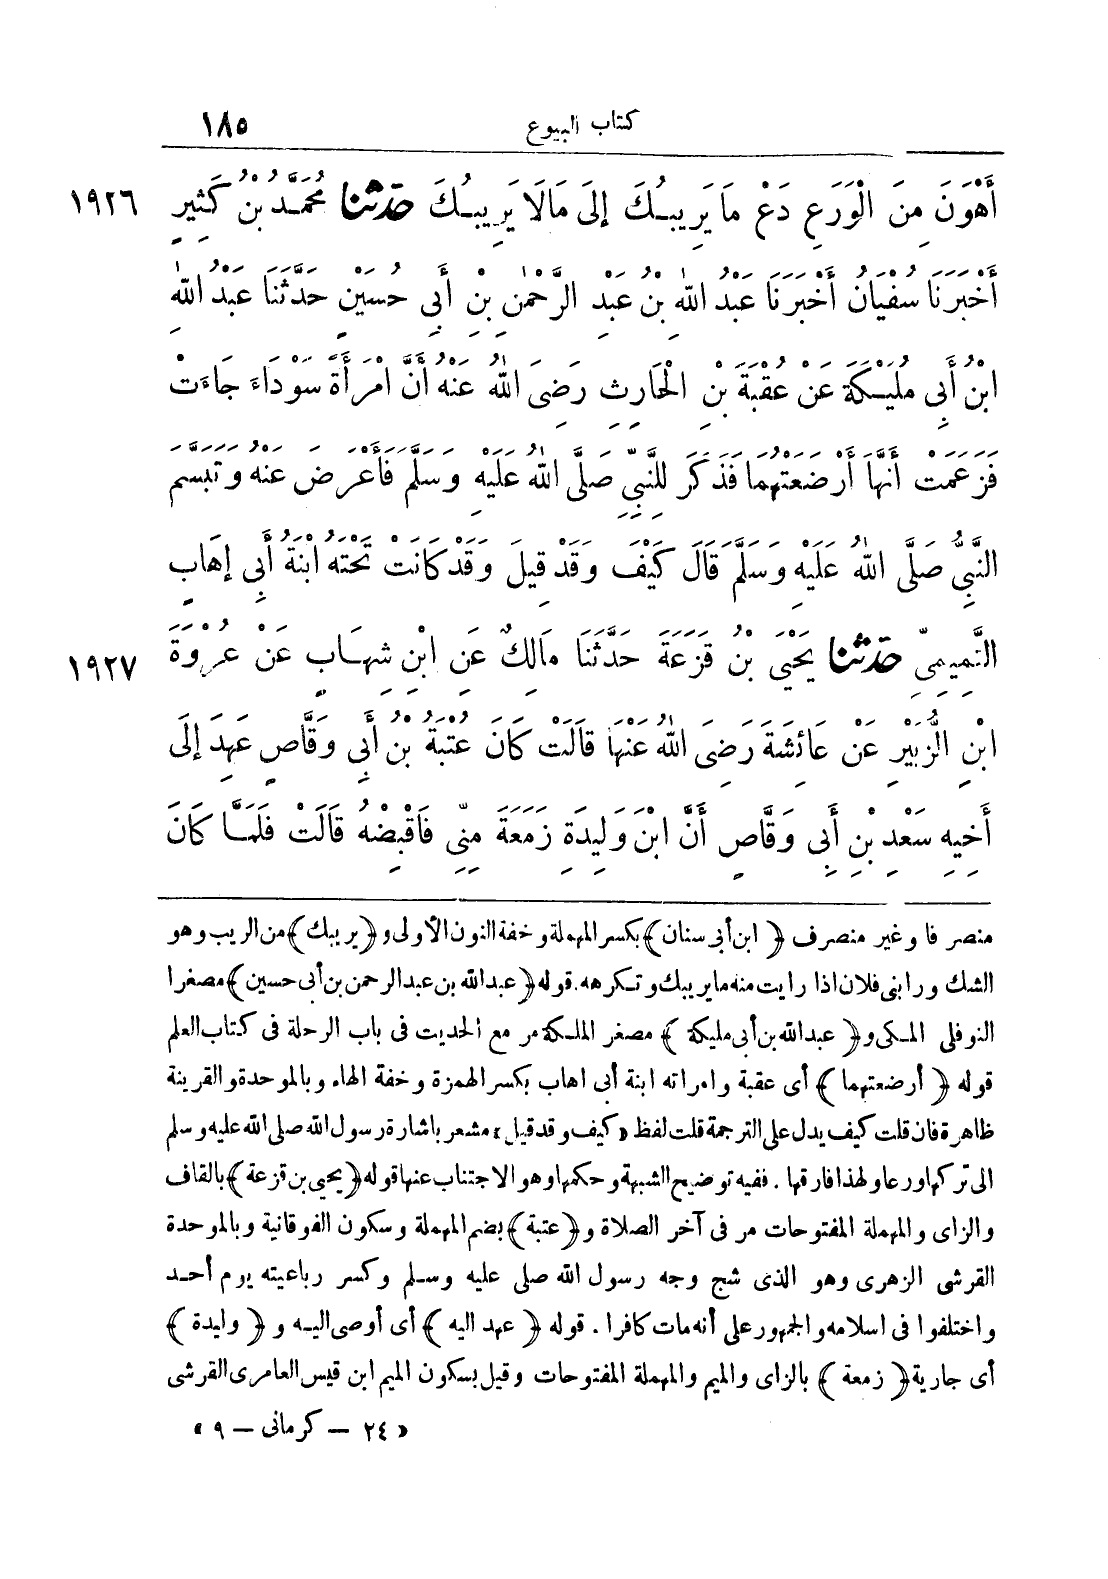 كتاب البيوع ١٨٥
أَهْوَنَ مِنَ الْوَرَعِ دَعْ مَا يَرِيبُكَ إِلَى مَالَا يَرِيبُكَ حدثنا مُحَمَّدُ بْنُ كَثِيرٍ ١٩٢٦
أَخْبَرَنَا سُفْيَانُ أَخْبَرَنَا عَبْدُ اللهِ بْنُ عَبْدِ الرَّحْمٰنِ بْنِ أَبِي حُسَيْنٍ حَدَّثَنَا عَبْدُ اللهِ
ابْنُ أَبِي مُلَيْكَةَ عَنْ عُقْبَةَ بْنِ الْحَارِثِ رَضِيَ اللهُ عَنْهُ أَنَّ امْرَأَةً سَوْدَاءَ جَاءَتْ
فَزَعَمَتْ أَنَّهَا أَرْضَعَتْهُمَا فَذَكَرَ لِلنَّبِيِّ صَلَّى اللهُ عَلَيْهِ وَسَلَّمَ فَأَعْرَضَ عَنْهُ وَتَبَسَّمَ
النَّبِيُّ صَلَّى اللهُ عَلَيْهِ وَسَلَّمَ قَالَ كَيْفَ وَقَدْ قِيلَ وَقَدْ كَانَتْ تَحْتَهُ ابْنَةُ أَبِي إِهَابٍ
التَّمِيمِيِّ حدثنا يَحْيَى بْنُ قَزَعَةَ حَدَّثَنَا مَالِكٌ عَنِ ابْنِ شِهَابٍ عَنْ عُرْوَةَ ١٩٢٧
ابْنِ الزُّبَيْرِ عَنْ عَائِشَةَ رَضِيَ اللهُ عَنْهَا قَالَتْ كَانَ عُتْبَةُ بْنُ أَبِي وَقَّاصٍ عَهِدَ إِلَى
أَخِيهِ سَعْدِ بْنِ أَبِي وَقَّاصٍ أَنَّ ابْنَ وَلِيدَةِ زَمَعَةَ مِنِّي فَاقْبِضْهُ قَالَتْ فَلَمَّا كَانَ
منصرفا وغير منصرف ﴿ ابن أبي سنان ﴾ بكسر المهملة وخفة النون الأولى و ﴿ يريبك ﴾ من الريب وهو
الشك ورابنى فلان اذا رايت منه ما يريبك وتكرهه. قوله ﴿ عبد الله بن عبد الرحمن بن أبى حسين ﴾ مصغرا
النوفلى المكى و ﴿ عبد الله بن أبى مليكة ﴾ مصغر الملكة مر مع الحديث فى باب الرحلة فى كتاب العلم
قوله ﴿ أرضعتهما ﴾ أى عقبة وامراته ابنة أبى اهاب بكسر الهمزة وخفة الهاء وبالموحدة والقرينة
ظاهرة فان قلت كيف يدل على الترجمة قلت لفظ «كيف وقد قيل» مشعر باشارة رسول الله صلى الله عليه وسلم
الى تركها ورعا ولهذا فارقها . ففيه توضيح الشبهة وحكمها وهو الاجتناب عنها قوله ﴿ يحيى بن قزعة ﴾ بالقاف
والزاى والمهملة المفتوحات مر فى آخر الصلاة و ﴿ عتبة ﴾ بضم المهملة وسكون الفوقانية وبالموحدة
القرشى الزهرى وهو الذى شج وجه رسول الله صلى عليه وسلم وكسر رباعيته يوم أحد
واختلفوا فى اسلامه والجمهور على أنه مات كافرا . قوله ﴿ عهد اليه ﴾ أى أوصى اليه و ﴿ وليدة ﴾
أى جارية ﴿ زمعة ﴾ بالزاى والميم والمهملة المفتوحات وقيل بسكون الميم ابن قيس العامرى القرشى
« ٢٤ – كرمانى – ٩ »